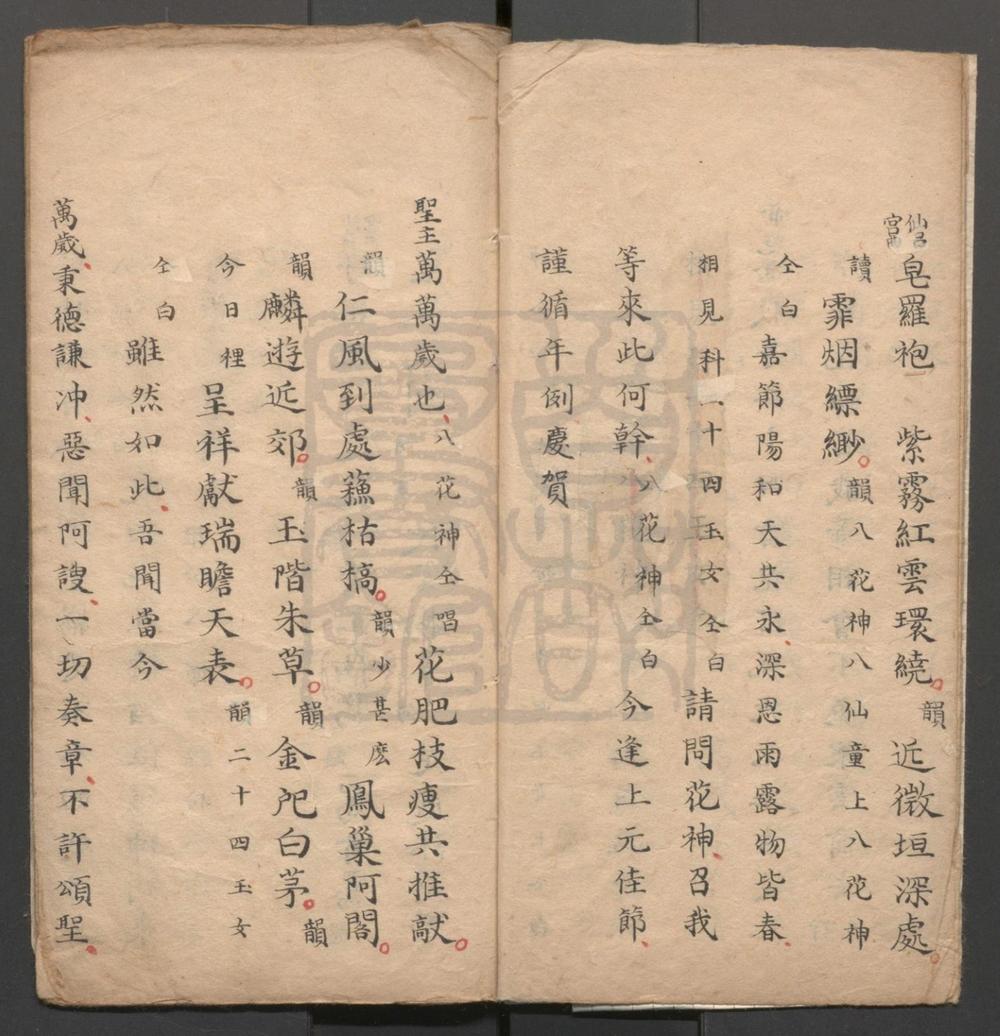 仙呂宮 皂羅袍 紫霧紅雲環繞。韻近微垣深處。
讀霏烟縹緲。韻八花神八仙童上八花神
仝白嘉節陽和天共永、深恩雨露物皆春、
相見科二十四玉女仝白請問花神、召我
等來此何幹、八花神仝白今逢上元佳節、
謹循年例慶賀
聖主萬萬歲也、八花神仝唱花肥枝瘦共推敲。
韻仁風到處蘓枯槁。韻少甚麽鳳巢阿閣。
韻麟遊近郊。韻玉階朱草。韻金戺白茅。韻
今日裡呈祥獻瑞瞻天表。韻二十四玉女
仝白雖然如此、吾聞當今
萬歲、秉德謙冲、惡聞阿謏、一切奏章、不許頌聖、